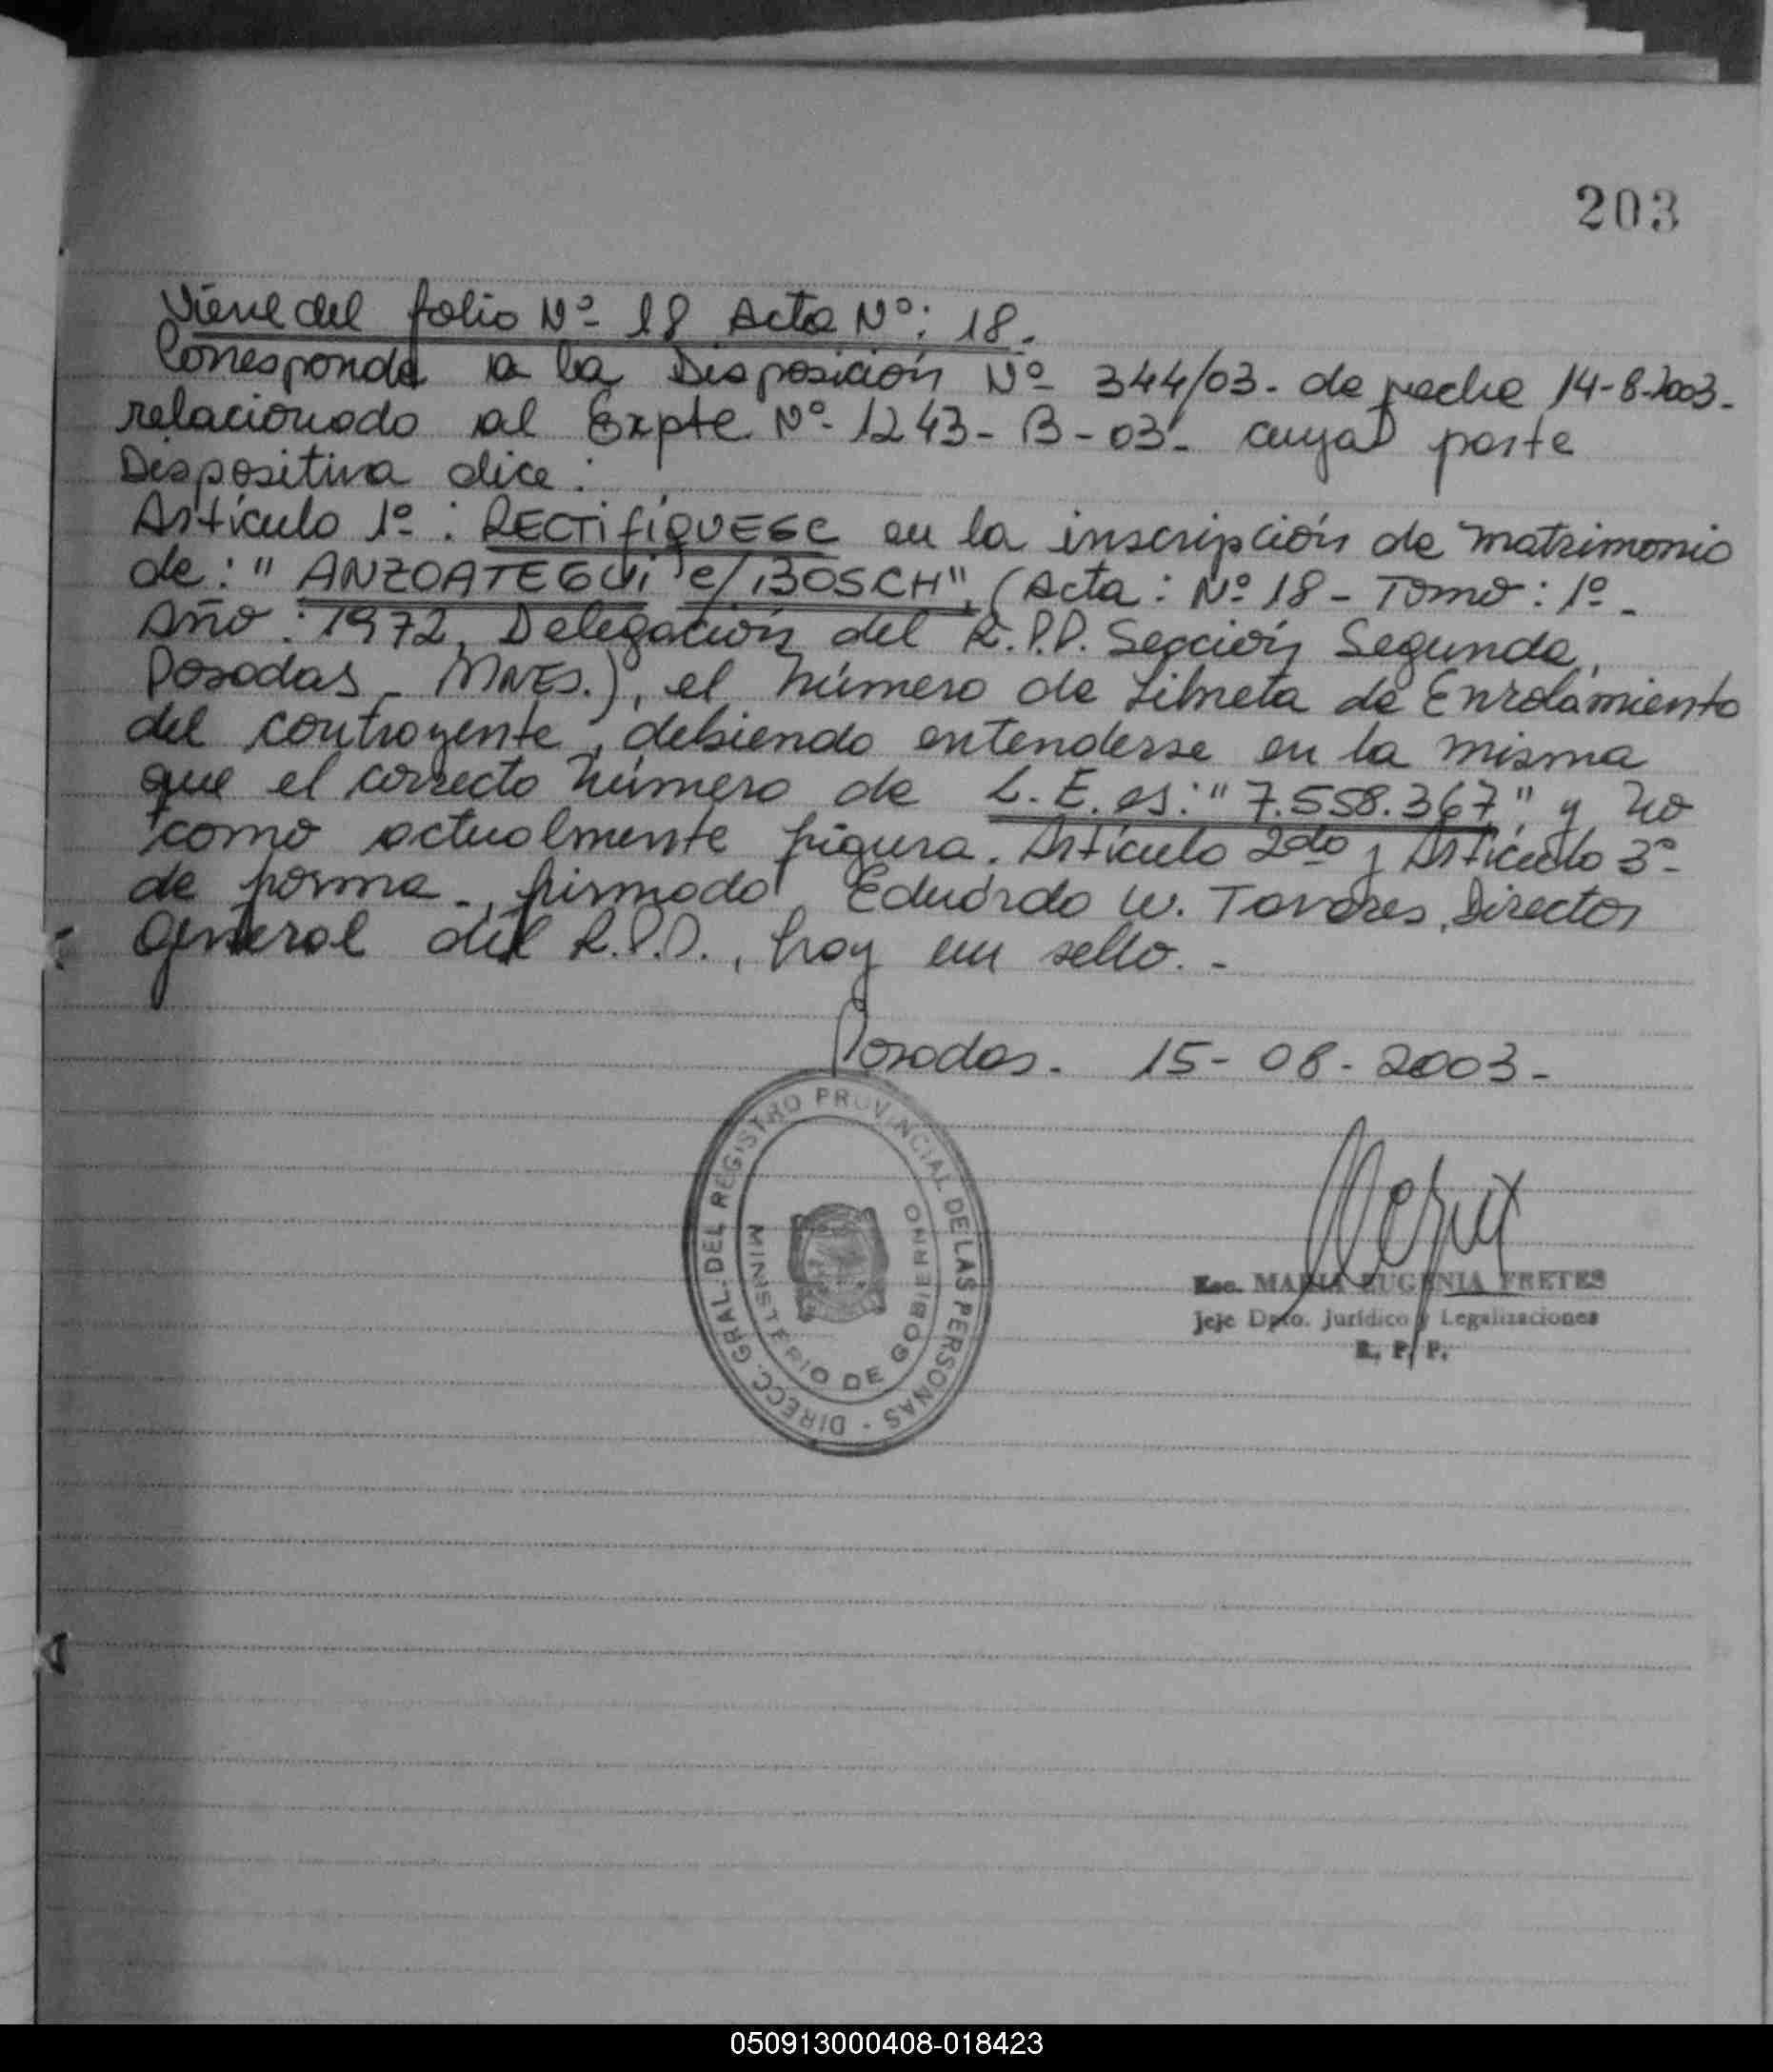 203
Viene del folio Nº 18 Acta Nº: 18.
Corresponde a la Disposición Nº 344/03. de fecha 14-8-2003.
relacionado al Expte Nº 1243-B-03. cuya parte
Dispositiva dice:
Artículo 1º: RECTIFÍQUESE en la inscripción de matrimonio
de: "ANZOATEGUI c/ BOSCH", (Acta: Nº 18 - Tomo: 1º -
Año: 1972, Delegación del R.P.P. Sección Segunda,
Posadas - MNES.), el número de Libreta de Enrolamiento
del contrayente, debiendo entenderse en la misma
que el correcto número de L.E. es: "7.558.367" y no
como actualmente figura. Artículo 2do y Artículo 3º-
de forma -, firmado Eduardo W. Tavares, Director
General del R.P.P., hay un sello. -
Posadas. 15-08-2003-
DIRECC. GRAL. DEL REGISTRO PROVINCIAL DE LAS PERSONAS -
MINISTERIO DE GOBIERNO
Esc. MARIA EUGENIA FRETES
Jeje Dpto. Jurídico y Legalizaciones
R. P. P.
050913000408-018423